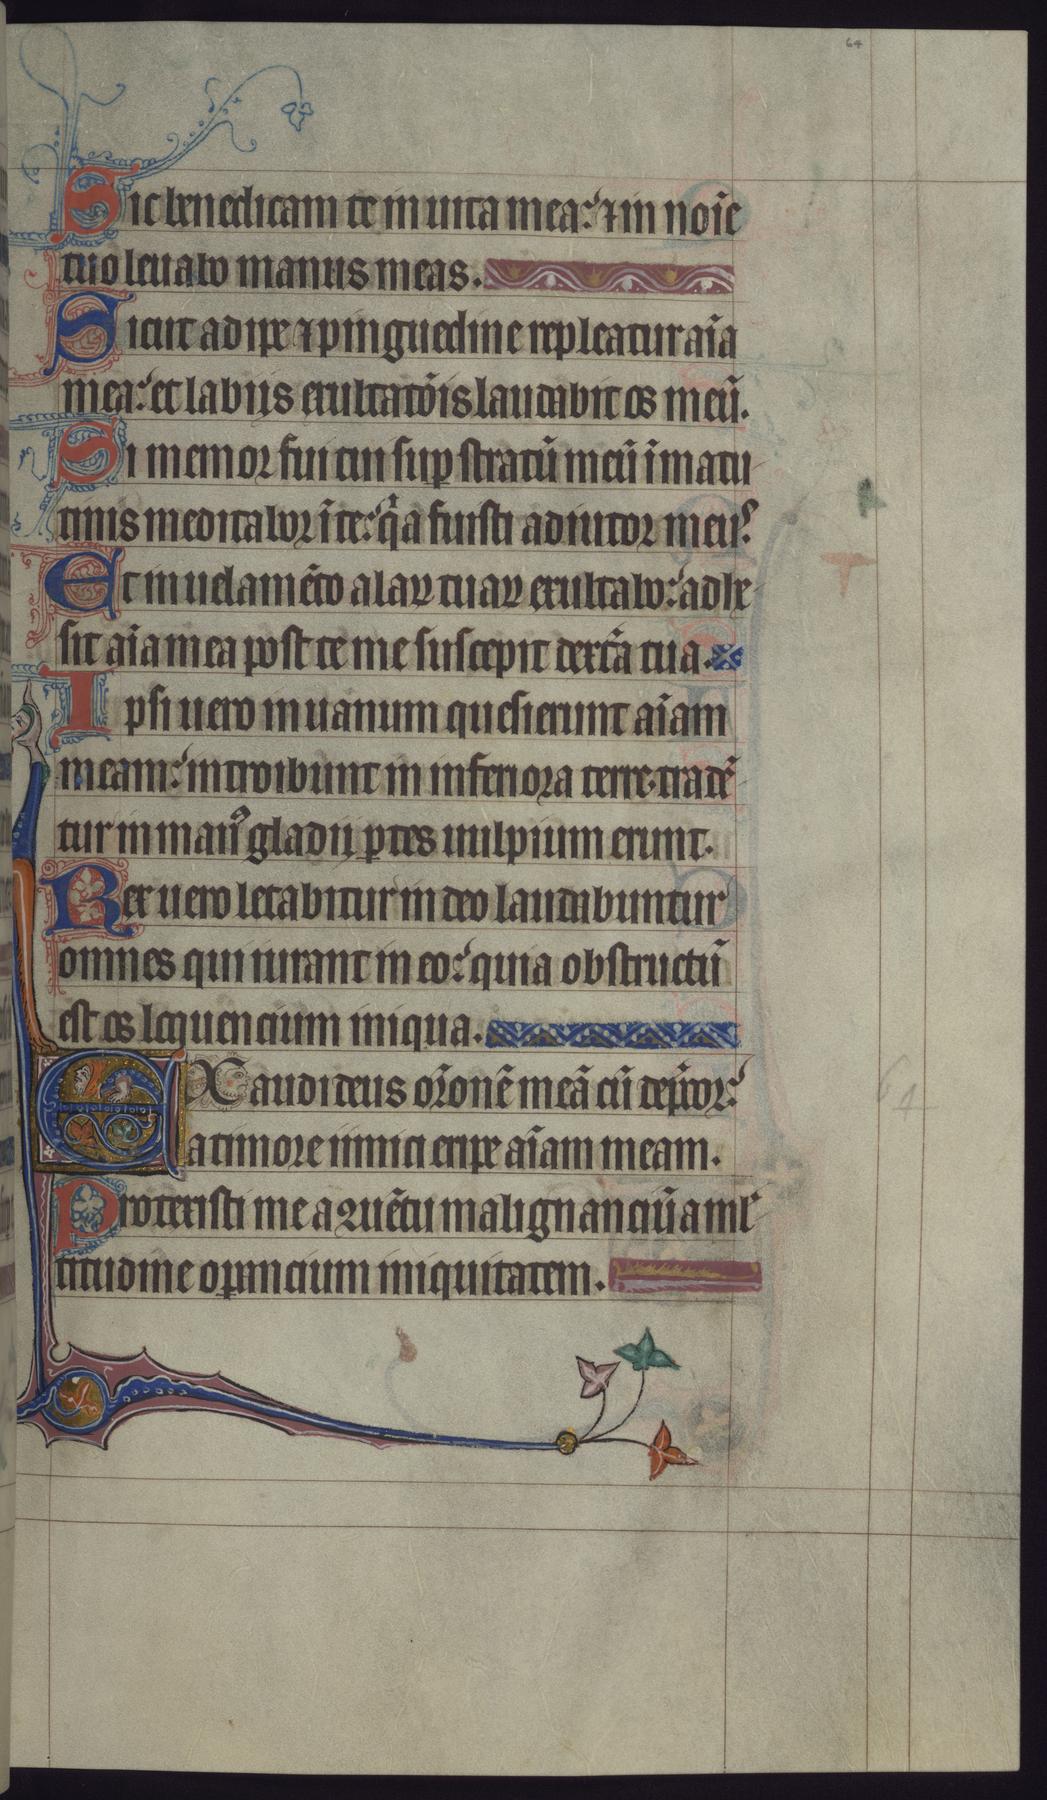 64
Sic benedicam te in uita mea: ⁊ in noīe
tuo leuabo manus meas.
Sicut adipe ⁊ pinguedine repleatur aīa
mea: et labijs exultatōis laudabit os meū.
Si memor fui tui sup stratū meū ī matu
tinis meditabor ī te: qͥa fuisti adiutor meuꝰ
Et in uelamēto alaꝝ tuaꝝ exultabo: adhe
sit aīa mea post te me suscepit dext̄a tua.
Ipsi uero in uanum quesierunt aīam
meam: introibunt in inferiora terre tradē
tur in manꝰ gladij ꝑtes uulpium erunt.
Rex uero letabitur in deo laudabuntur
omnes qui iurant in eo: quia obstructū
est os loquencium iniqua.
EXaudi deus oŕonē meā cū dep̄cor:
a timore inimici eripe aīam meam.
Protexisti me a ꝯuētu malignanciū a ml̓
titudine oꝑancium iniquitatem.
64